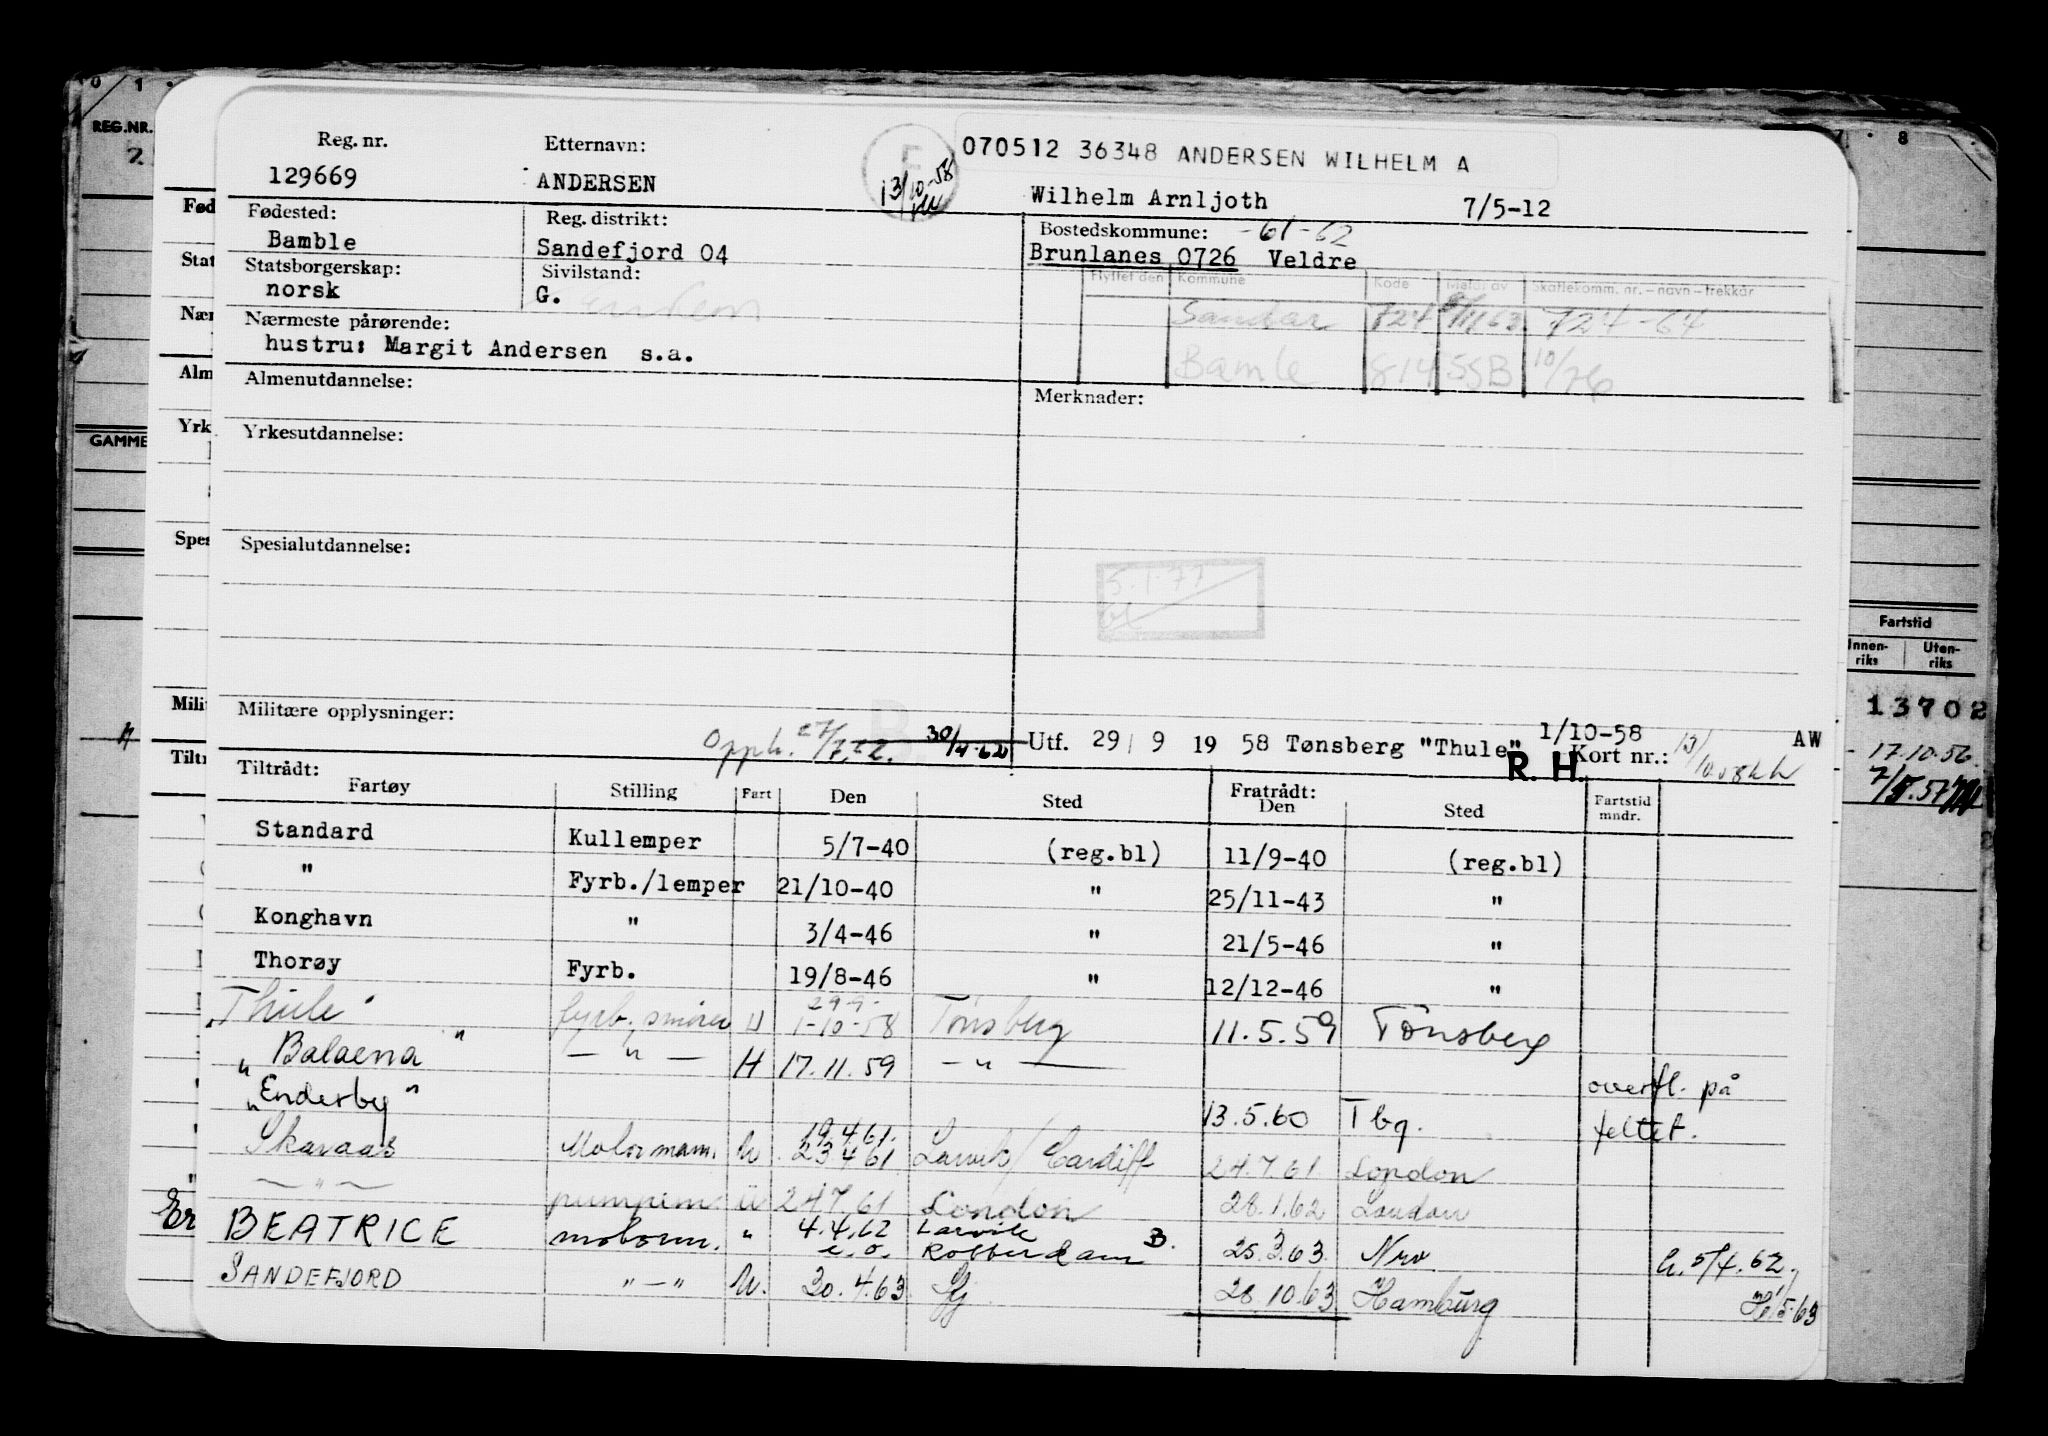 Reg. nr.
129669
Etternavn:
ANDERSEN
13/10-58
070512 36348 ANDERSEN WILHELM A
Wilhelm Arnljoth 7/5-12
Fødested:
Bamble
Reg. distrikt:
Sandefjord 04
Bostedskommune: -61-62
Brunlanes 0726 Veldre
Statsborgerskap:
norsk
Sivilstand:
G.
Flyttet den Kommune Kode Meldt av Skattekomm. nr. - navn - trekkår
Sandar 724 9/11 63 724-64
Bamle 814 SSB 10/76
Nærmeste pårørende:
hustru: Margit Andersen s.a.
Almenutdannelse:
Merknader:
Yrkesutdannelse:
Spesialutdannelse:
5.1.77
Militære opplysninger:
Opph. 27/7.62. 30/4-62
Utf. 29 / 9 19 58 Tønsberg "Thule" 1/10-58
R. H.
Kort nr.: AW
Tiltrådt: Fratrådt:
Fartøy Stilling Fart Den Sted Den Sted Fartstid mndr.
Standard Kullemper 5/7-40 (reg.bl) 11/9-40 (reg.bl)
" Fyrb./lemper 21/10-40 " 25/11-43 "
Konghavn " 3/4-46 " 21/5-46 "
Thorøy Fyrb. 19/8-46 " 12/12-46 "
29 9-
Thule fyrb. smører U 1-10-58 Tønsberg 11.5.59 Tønsberg
"Balaena" — " — H 17.11.59 — " — overfl. på
"Enderby" 13.5.60 Tbg. feltet.
19.4.61.
Skaraas Motormann. U 23 4 61 Larvik/Cardiff 24.7.61 London
— " — pumpem. U 24 7 61 London 28.1.62 London
BEATRICE motorm. " 4.4.62 Larvik
e.o. Rotterdam B. 25.3.63. Nrv h. 5/4.62.
SANDEFJORD " — " U. 30.4.63 Sfj 28.10.63 Hamburg
REG.NR.
GAMME
Fartstid
Innen-
riks
Uten-
riks
13702
17.10.56.